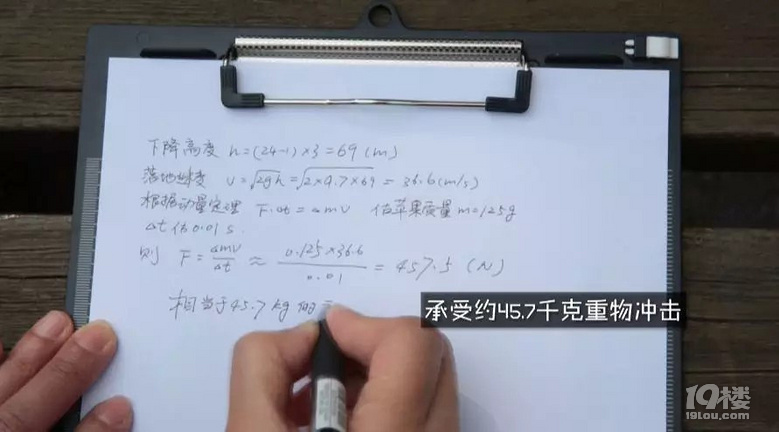 下降高度 h=(24-1)×3=69(m)
落地速度 v=√2gh=√2×9.7×69=36.6(m/s)
根据动量定理 F·Δt=Δmv 估苹果质量m=125g
Δt估0.01s.
则 F=Δmv/Δt≈0.125×36.6/0.01=457.5(N)
相当于45.7kg的
承受约45.7千克重物冲击
19楼
19lou.com